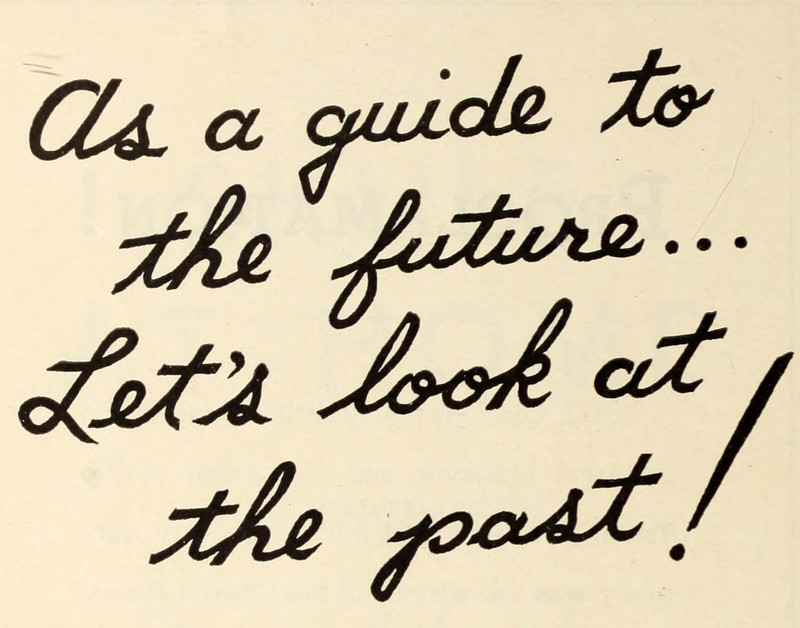 As a guide to
the future...
Let's look at
the past!